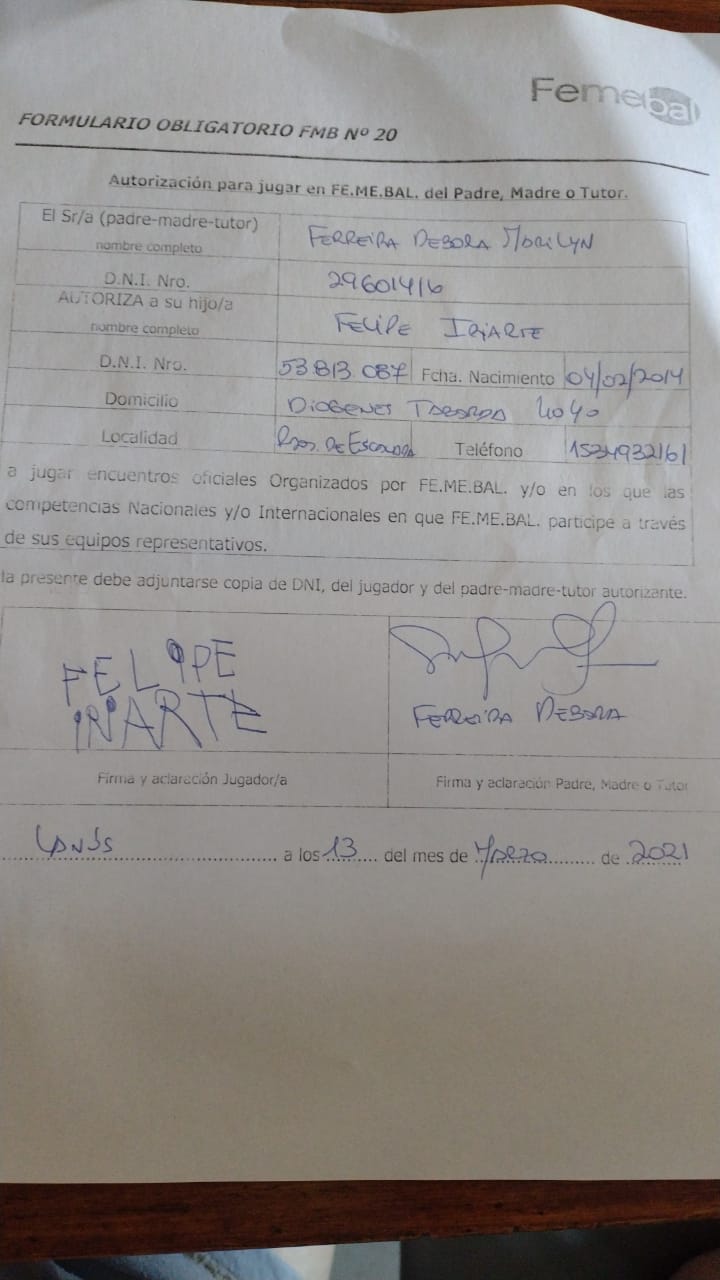 Femebal
FORMULARIO OBLIGATORIO FMB Nº 20
Autorización para jugar en FE.ME.BAL. del Padre, Madre o Tutor.
El Sr/a (padre-madre-tutor)
nombre completo
FERREIRA DEBORA MARILYN
D.N.I. Nro.
29601416
AUTORIZA a su hijo/a
nombre completo
FELIPE IRIARTE
D.N.I. Nro. 53.813.087 Fcha. Nacimiento 04/02/2014
Domicilio DIOGENES TABORDA 4040
Localidad DE ESCALADA Teléfono 1534932161
a jugar encuentros oficiales Organizados por FE.ME.BAL. y/o en los que las
competencias Nacionales y/o Internacionales en que FE.ME.BAL. participe a través
de sus equipos representativos.
la presente debe adjuntarse copia de DNI, del jugador y del padre-madre-tutor autorizante.
FELIPE
IRIARTE
FERREIRA DEBORA
Firma y aclaración Jugador/a
Firma y aclaración Padre, Madre o Tutor
LANÚS a los 13 del mes de MARZO de 2021